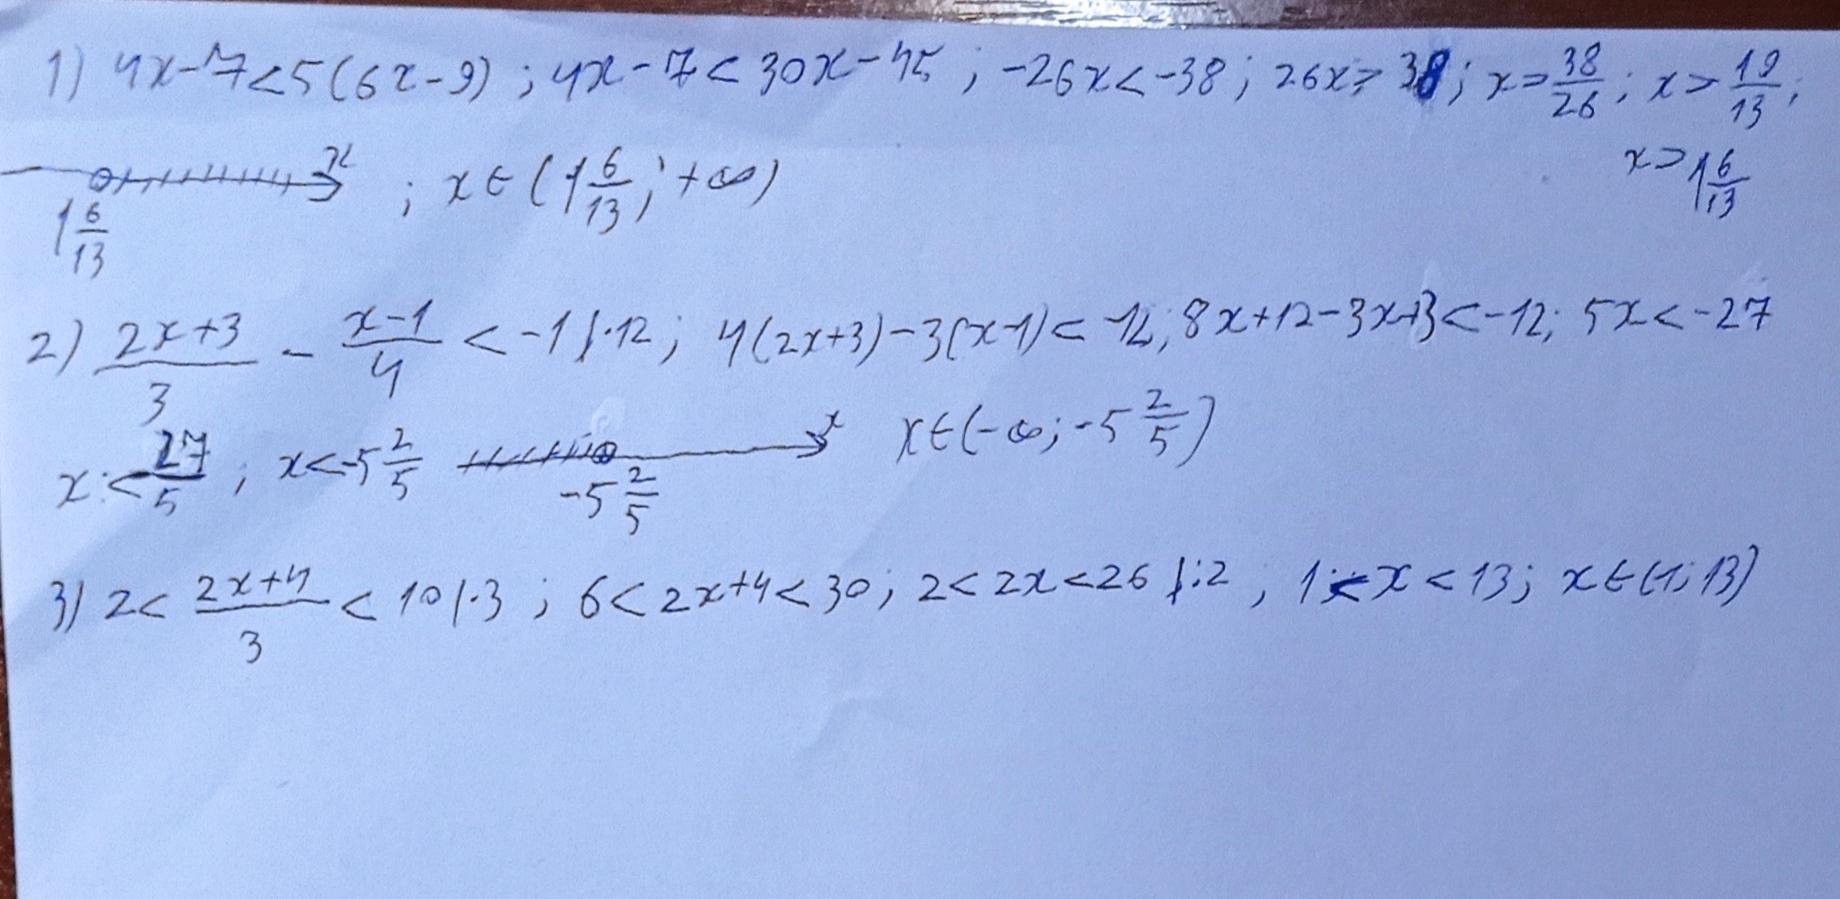 1) 4x-7<5(6x-9) ; 4x-7<30x-45 ; -26x<-38 ; 26x>38 ; x>38/26 ; x>19/13 ;
x>1 6/13
x
1 6/13
; x∈(1 6/13 ; +∞)
2) (2x+3)/3 - (x-1)/4 < -1 |·12 ; 4(2x+3)-3(x-1)<-12 ; 8x+12-3x+3<-12 ; 5x<-27
x<-27/5 ; x<-5 2/5
x
-5 2/5
x∈(-∞; -5 2/5)
3) 2< (2x+4)/3 <10 |·3 ; 6<2x+4<30 ; 2<2x<26 |:2 ; 1<x<13 ; x∈(1; 13)